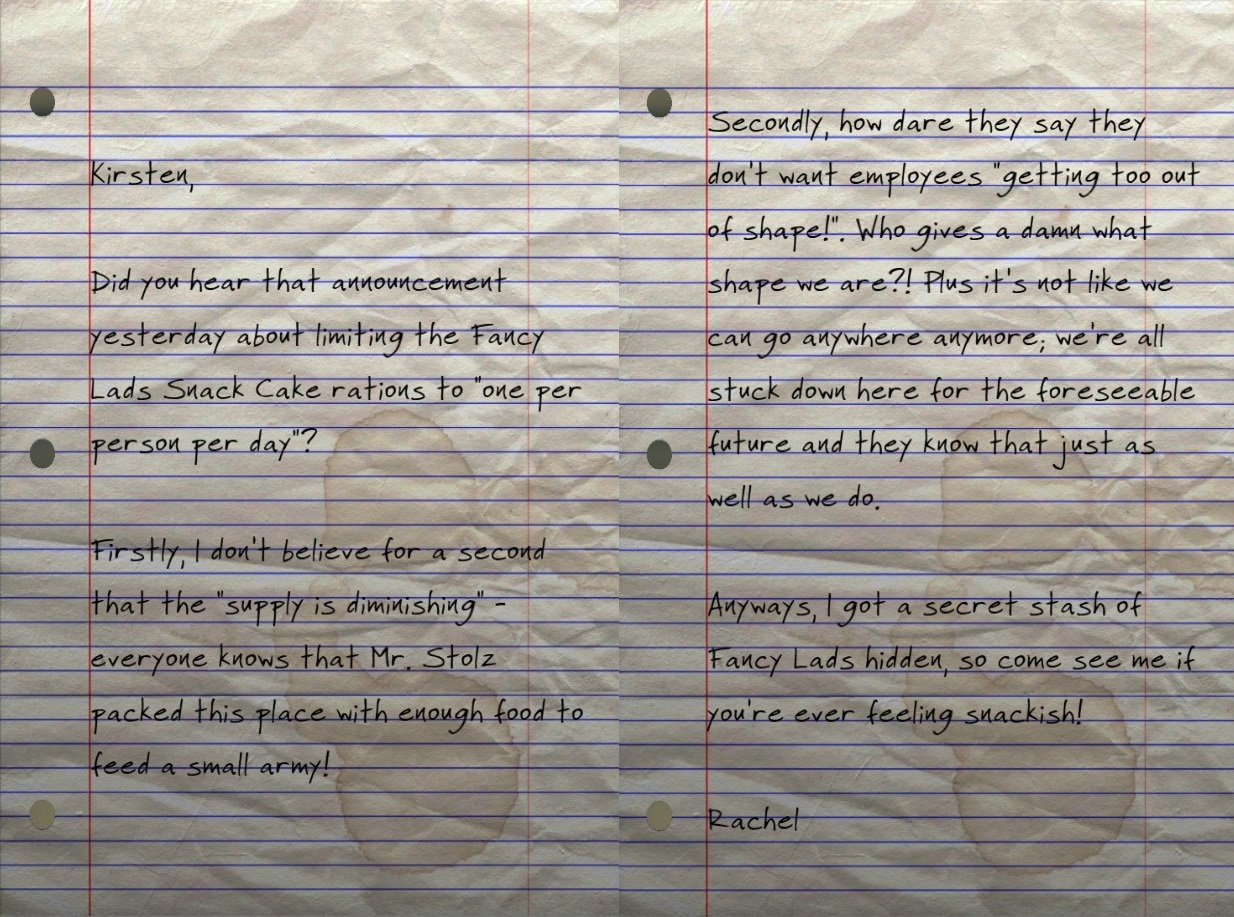 Kirsten,
Did you hear that announcement
yesterday about limiting the Fancy
Lads Snack Cake rations to "one per
person per day"?
Firstly, I don't believe for a second
that the "supply is diminishing" -
everyone knows that Mr. Stolz
packed this place with enough food to
feed a small army!
Secondly, how dare they say they
don't want employees "getting too out
of shape!". Who gives a damn what
shape we are?! Plus it's not like we
can go anywhere anymore; we're all
stuck down here for the foreseeable
future and they know that just as
well as we do.
Anyways, I got a secret stash of
Fancy Lads hidden, so come see me if
you're ever feeling snackish!
Rachel